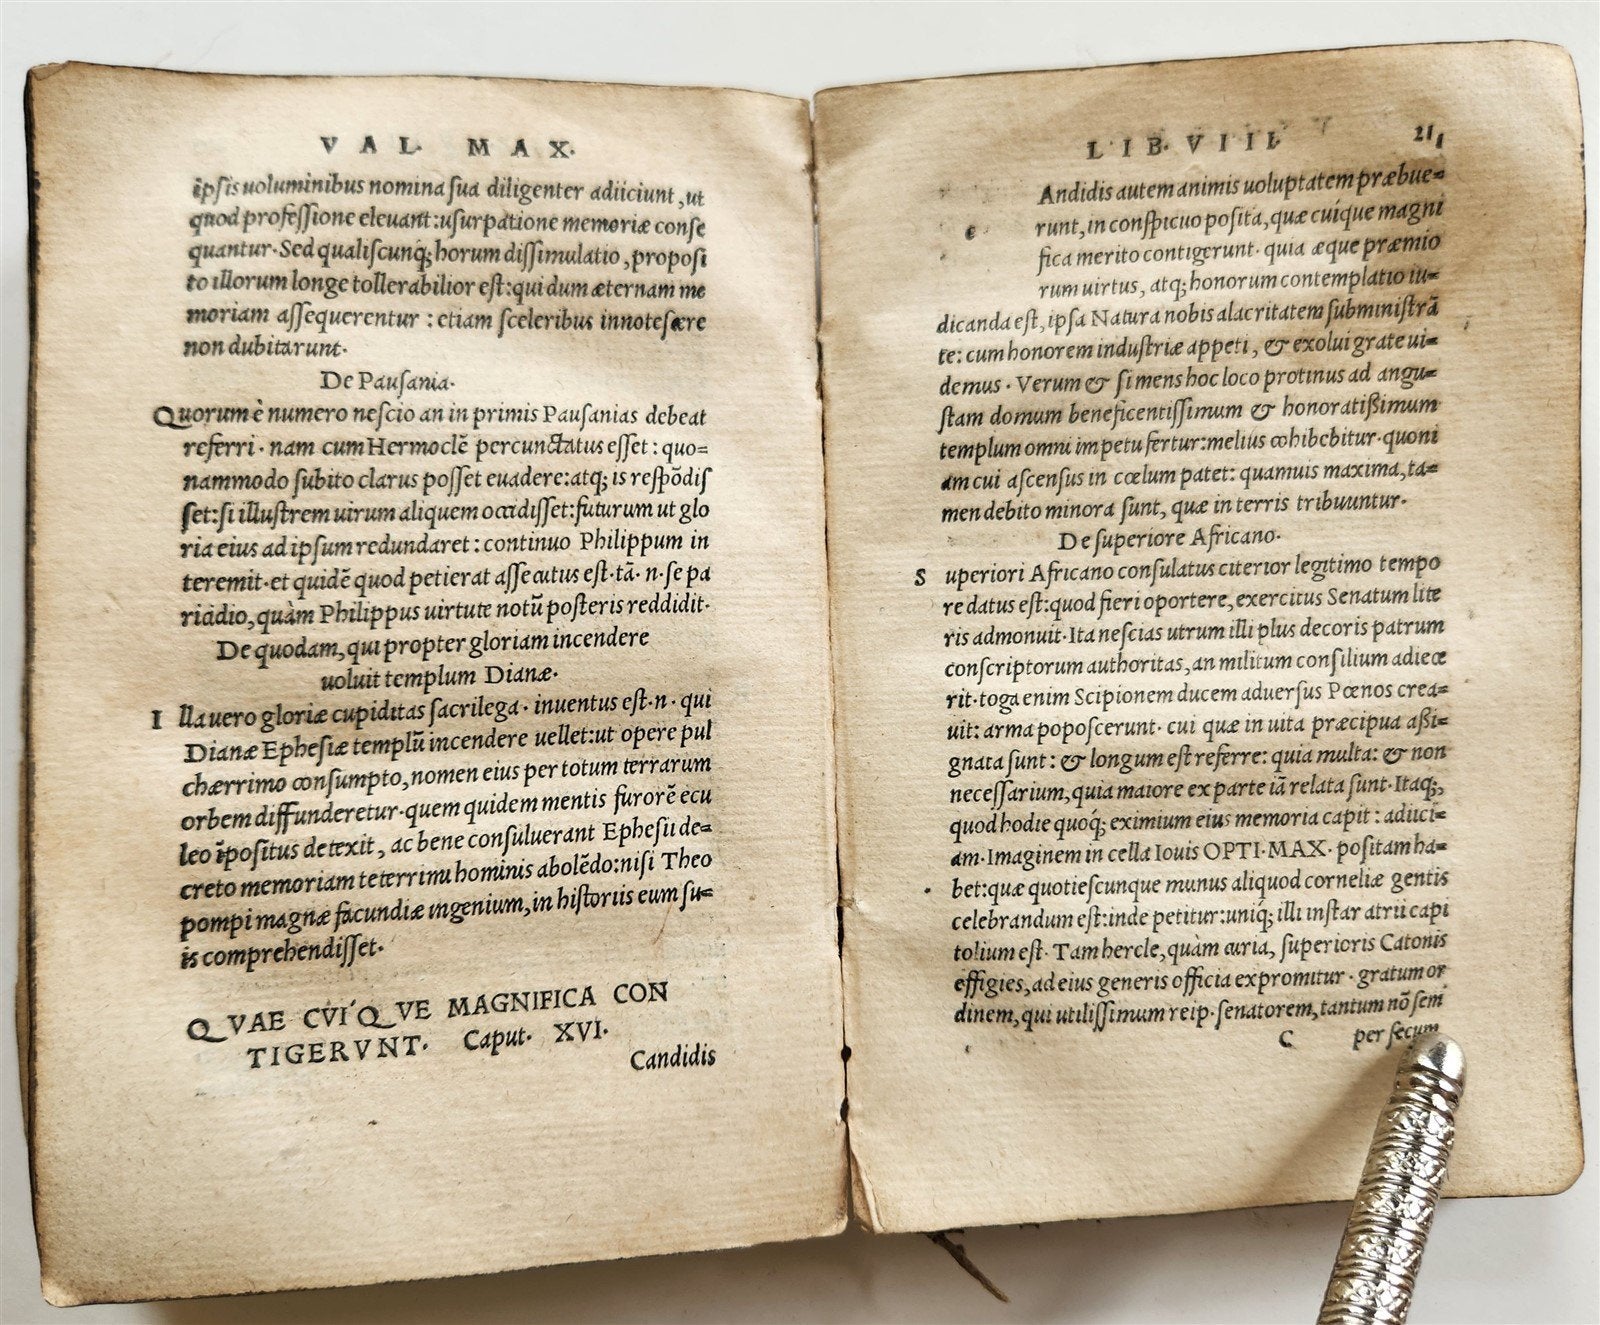 VAL. MAX.
ĩpsis uoluminibus nomina sua diligenter adiiciunt, ut
quod professione eleuant: usurpatione memoriæ conse
quantur. Sed qualiscunq; horum dissimulatio, proposi
to illorum longe tollerabilior est: qui dum æternam me
moriam assequerentur: etiam sceleribus innotescere
non dubitarunt.
De Pausania.
Quorum è numero nescio an in primis Pausanias debeat
referri. nam cum Hermoclẽ percunctatus esset: quo=
nammodo subito clarus posset euadere: atq; is respõdis
set: si illustrem uirum aliquem occidisset: futurum ut glo
ria eius ad ipsum redundaret: continuo Philippum in
teremit. et quidẽ quod petierat assecutus est. tã. n. se pa
ricidio, quàm Philippus uirtute notũ posteris reddidit.
De quodam, qui propter gloriam incendere
uoluit templum Dianæ.
Illa uero gloriæ cupiditas sacrilega. inuentus est. n. qui
Dianæ Ephesiæ templũ incendere uellet: ut opere pul
chærrimo consumpto, nomen eius per totum terrarum
orbem diffunderetur. quem quidem mentis furorẽ ecu
leo ĩpositus detexit, ac bene consuluerant Ephesii de=
creto memoriam teterrimi hominis abolẽdo: nisi Theo
pompi magnæ facundiæ ingenium, in historiis eum su=
is comprehendisset.
QVAE CVÍQVE MAGNIFICA CON
TIGERVNT. Caput. XVI.
Candidis
LIB. VIII. 21
c Andidis autem animis uoluptatem præbue=
runt, in conspicuo posita, quæ cuíque magni
fica merito contigerunt. quia æque præmio
rum uirtus, atq; honorum contemplatio iu=
dicanda est, ipsa Natura nobis alacritatem subministrã
te: cum honorem industriæ appeti, & exolui grate ui=
demus. Verum & si mens hoc loco protinus ad angu=
stam domum beneficentissimum & honoratißimum
templum omni impetu fertur: melius cohibebitur. quoni
am cui ascensus in cœlum patet: quamuis maxima, ta=
men debito minora sunt, quæ in terris tribuuntur.
De superiore Africano.
Superiori Africano consulatus citerior legitimo tempo
re datus est: quod fieri oportere, exercitus Senatum lite
ris admonuit. Ita nescias utrum illi plus decoris patrum
conscriptorum authoritas, an militum consilium adiece
rit. toga enim Scipionem ducem aduersus Pœnos crea=
uit: arma poposcerunt. cui quæ in uita præcipua aßi=
gnata sunt: & longum est referre: quia multa: & non
necessarium, quia maiore ex parte iã relata sunt. Itaq;,
quod hodie quóq; eximium eius memoria capit: adiici=
am. Imaginem in cella Iouis OPTI. MAX. positam ha=
bet: quæ quotiescunque munus aliquod corneliæ gentis
celebrandum est: inde petitur: uniq́; illi instar atrii capi
tolium est. Tam hercle, quàm curia, superioris Catonis
effigies, ad eius generis officia expromitur. gratum or
dinem, qui utilissimum reip. senatorem, tantum nõ sem
C per secum